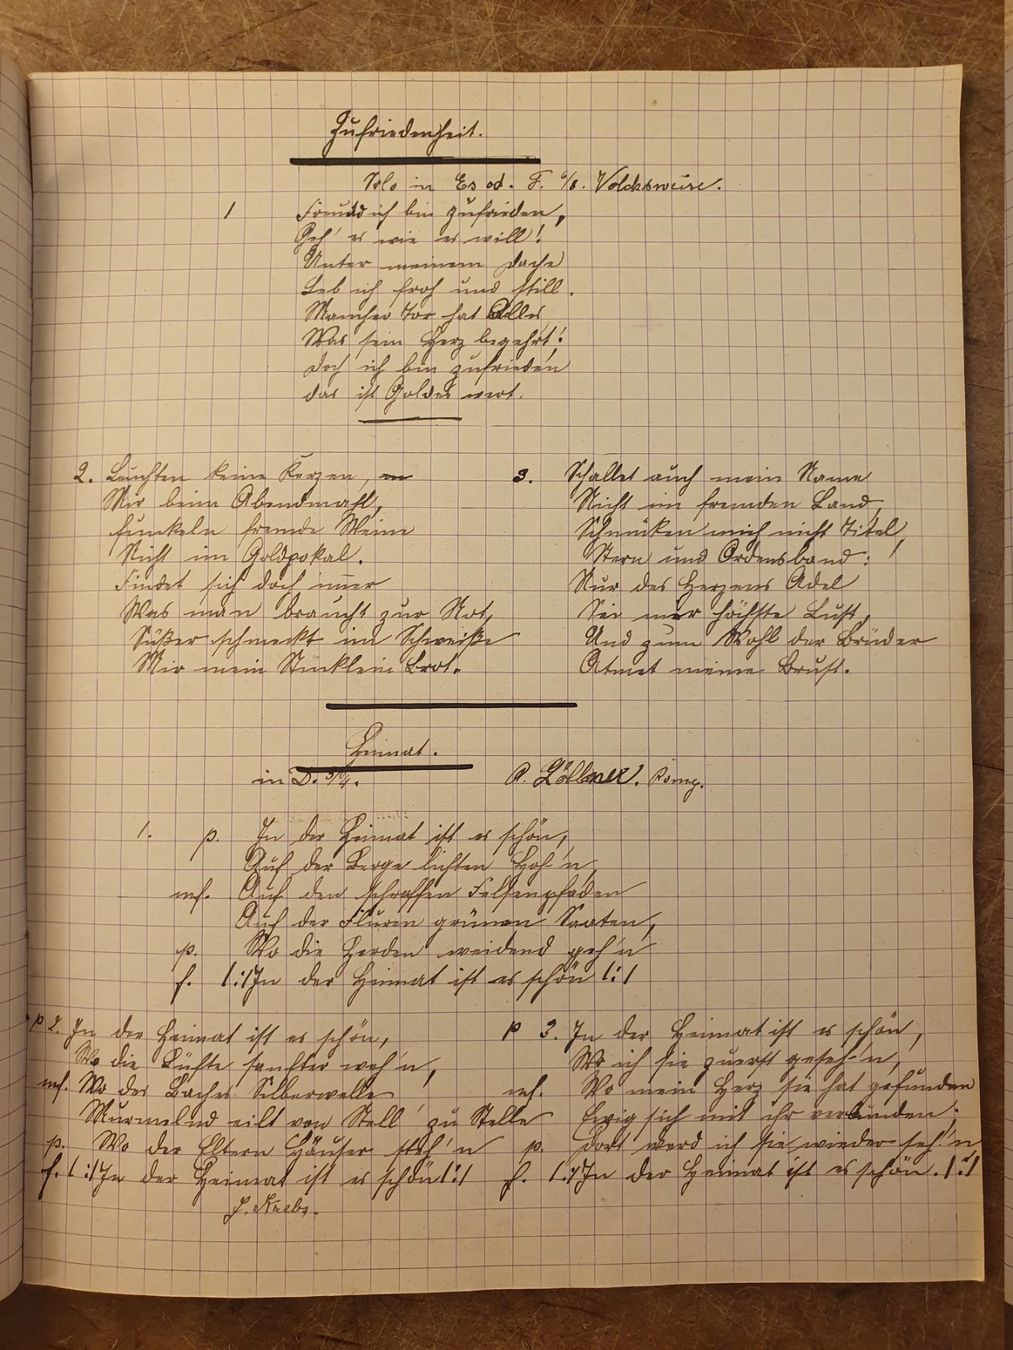 Zufriedenheit.
Solo in Es od. F. 6/8. Volcksweise.
1
Freund ich bin zufrieden,
Geh' es wie es will!
Unter meinem Dache
Leb ich froh und still.
Mancher Tor hat Alles
Was sein Herz begehrt!
Doch ich bin zufrieden
das ist Goldes wert.
2. Leuchten keine Kerzen,
Mir beim Abendmahl,
funkeln fremde Weine
Nicht im Goldpokal.
Findet sich doch immer
Was man braucht zur Not,
Süßer schmeckt im Schweiße
Mir mein Stücklein Brot.
3. Schallet auch mein Name
Nicht im fremden Land,
Schmücken mich nicht Titel,
Stern und Ordensband:
Nur des Herzens Adel
Sei mir höchste Lust,
Und zum Wohl der Brüder
Atmet meine Brust.
Heimat.
in D. 3/4.
A. Zöllner. Komp.
1. p. In der Heimat ist es schön,
Auf der Berge lichten Höh'n,
mf. Auf den schroffen Felsenpfaden
Auf der Fluren grünen Saaten,
p. Wo die Herden weidend geh'n
f. |:|In der Heimat ist es schön|:|
p 2. In der Heimat ist es schön,
Wo die Lüfte sanfter weh'n,
mf. Wo des Baches Silberwelle
Murmelnd eilt von Stell' zu Stelle
p. Wo der Eltern Häuser steh'n
f. |:|In der Heimat ist es schön|:|
p 3. In der Heimat ist es schön,
Wo ich sie zuerst geseh'n,
mf. Wo mein Herz sie hat gefunden
Ewig sich mit ihr verbinden;
p. dort werd ich sie wieder seh'n
f. |:|In der Heimat ist es schön.|:|
J. Krebs.